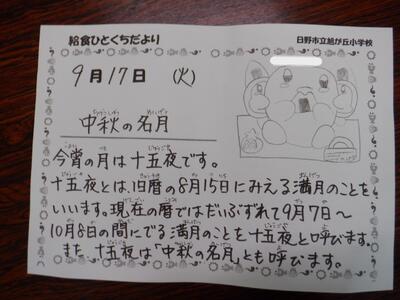 給食ひとくちだより
日野市立旭が丘小学校
9月17日 (火)
中秋の名月
今宵の月は十五夜です。
十五夜とは、旧暦の8月15日にみえる満月のことを
いいます。現在の暦ではだいぶずれて9月7日〜
10月8日の間にでる満月のことを十五夜と呼びます。
また、十五夜は「中秋の名月」とも呼びます。